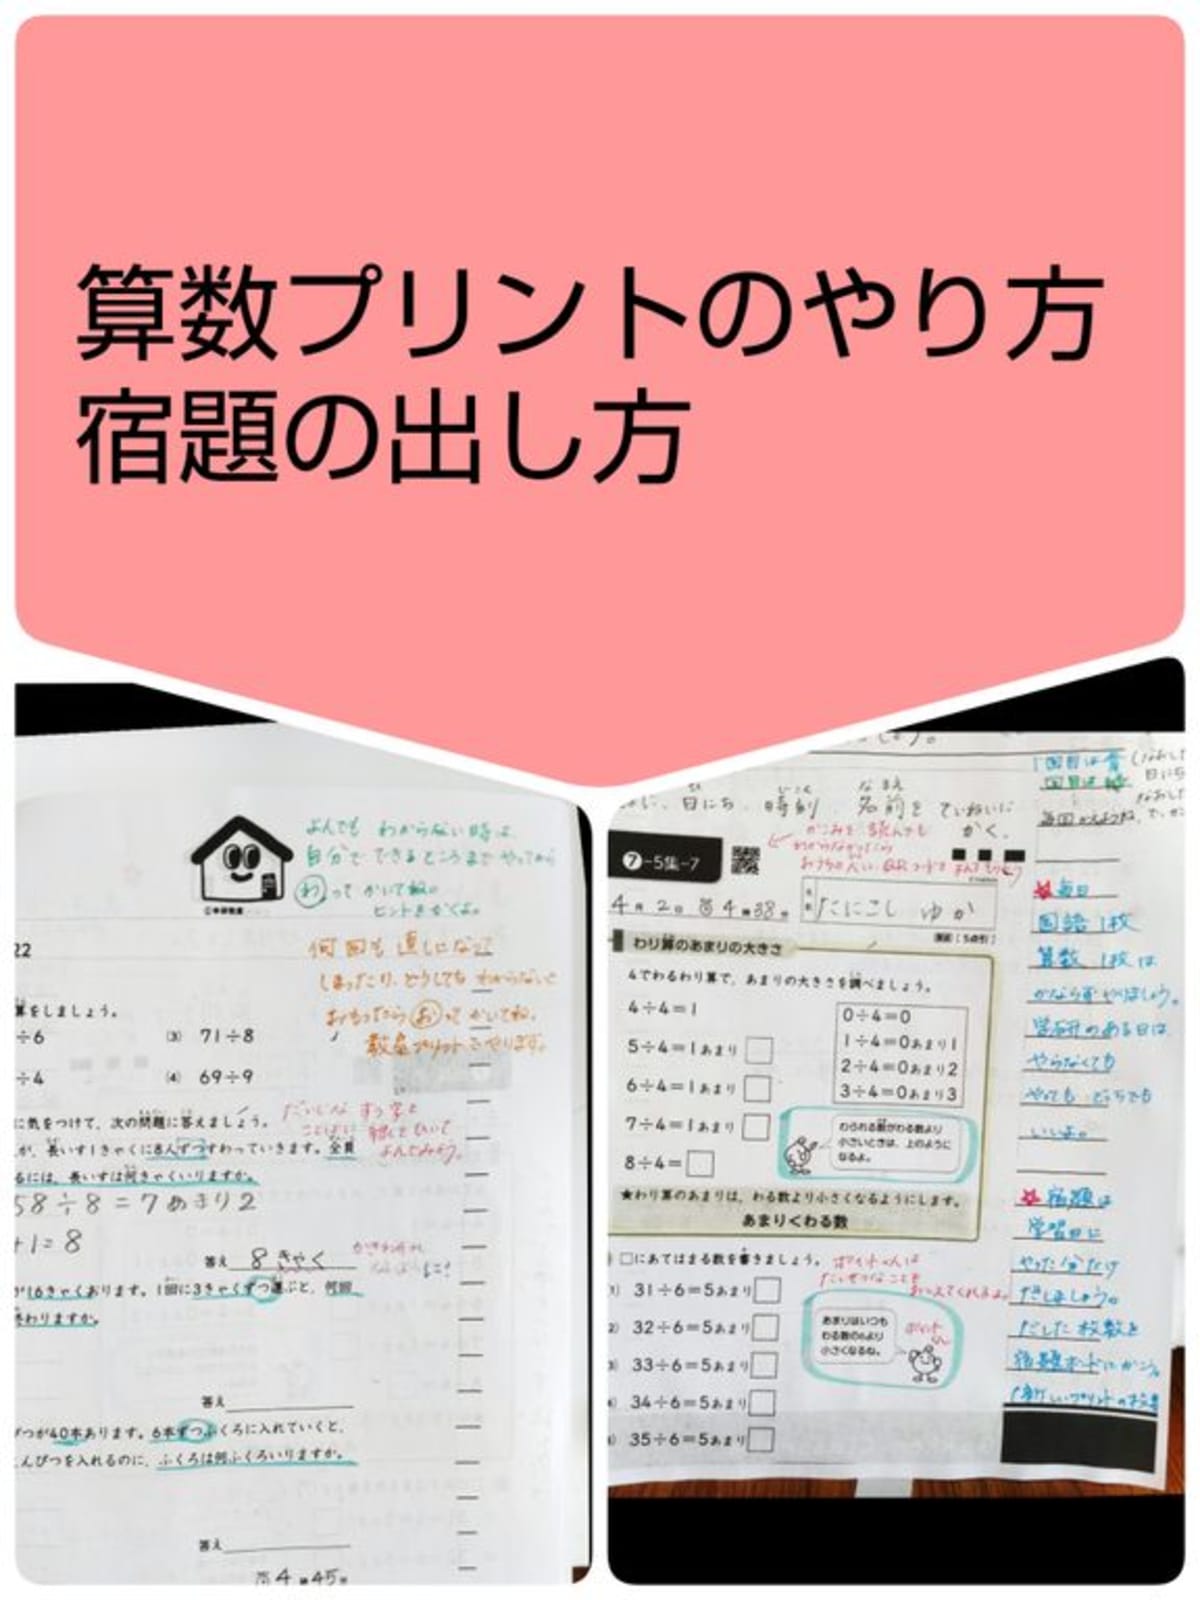 算数プリントのやり方
宿題の出し方
よんでも わからない時は、
自分で できるところまで やってから
わって かいてね。
ヒントをかくよ。
何回も 直しになって
しまったり、どうしても わからないと
おもったら おって かいてね。
教室プリントで やります。
22
算をしましょう。
÷6
(3) 71÷8
÷4
(4) 69÷9
に気をつけて、次の問題に答えましょう。
だいじな すう字と
ことばに 線をひいて
よんでみよう。
が、長いす1きゃくに8人ずつすわっていきます。全員
るには、長いすは何きゃくいりますか。
58÷8=7あまり2
+1=8
答え 8きゃく
が16きゃくあります。1回に3きゃくずつ運ぶと、何回
終わりますか。
答え
ぴつが40本あります。6本ずつふくろに入れていくと、
えんぴつを入れるのに、ふくろは何ふくろいりますか。
答え
4 45
日にち、時刻、名前を ていねいに
かく。
7-5集-7
4月2日 4 38
たにこし ゆか
わり算のあまりの大きさ
4でわるわり算で、あまりの大きさを調べましょう。
4÷4=1
5÷4=1あまり
6÷4=1あまり
7÷4=1あまり
8÷4=
0÷4=0
1÷4=0あまり1
2÷4=0あまり2
3÷4=0あまり3
わられる数がわる数より
小さいときは、上のように
なるよ。
★わり算のあまりは、わる数より小さくなるようにします。
あまり<わる数
□にあてはまる数を書きましょう。
31÷6=5あまり
32÷6=5あまり
33÷6=5あまり
34÷6=5あまり
35÷6=5あまり
あまりはいつも
わる数の6より
小さくなるね。
1回目は青
毎日
国語 1枚
算数 1枚は
かならずやりましょう。
学研のある日は
やらなくても
やっても どっちでも
いいよ。
宿題は
学習日に
やった分だけ
だしましょう。
だした枚数を
宿題ボードにかこう。